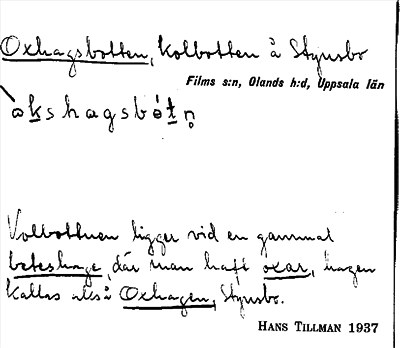 Oxhagsbotten, kolbotten å Styusbo
Films s:n, Olands h:d, Uppsala län
okshagsbòtn̥
Kolbottnen ligger vid en gammal
beteshage, där man haft oxar, hagen
kallas Oxhagen, Styusbo.
HANS TILLMAN 1937